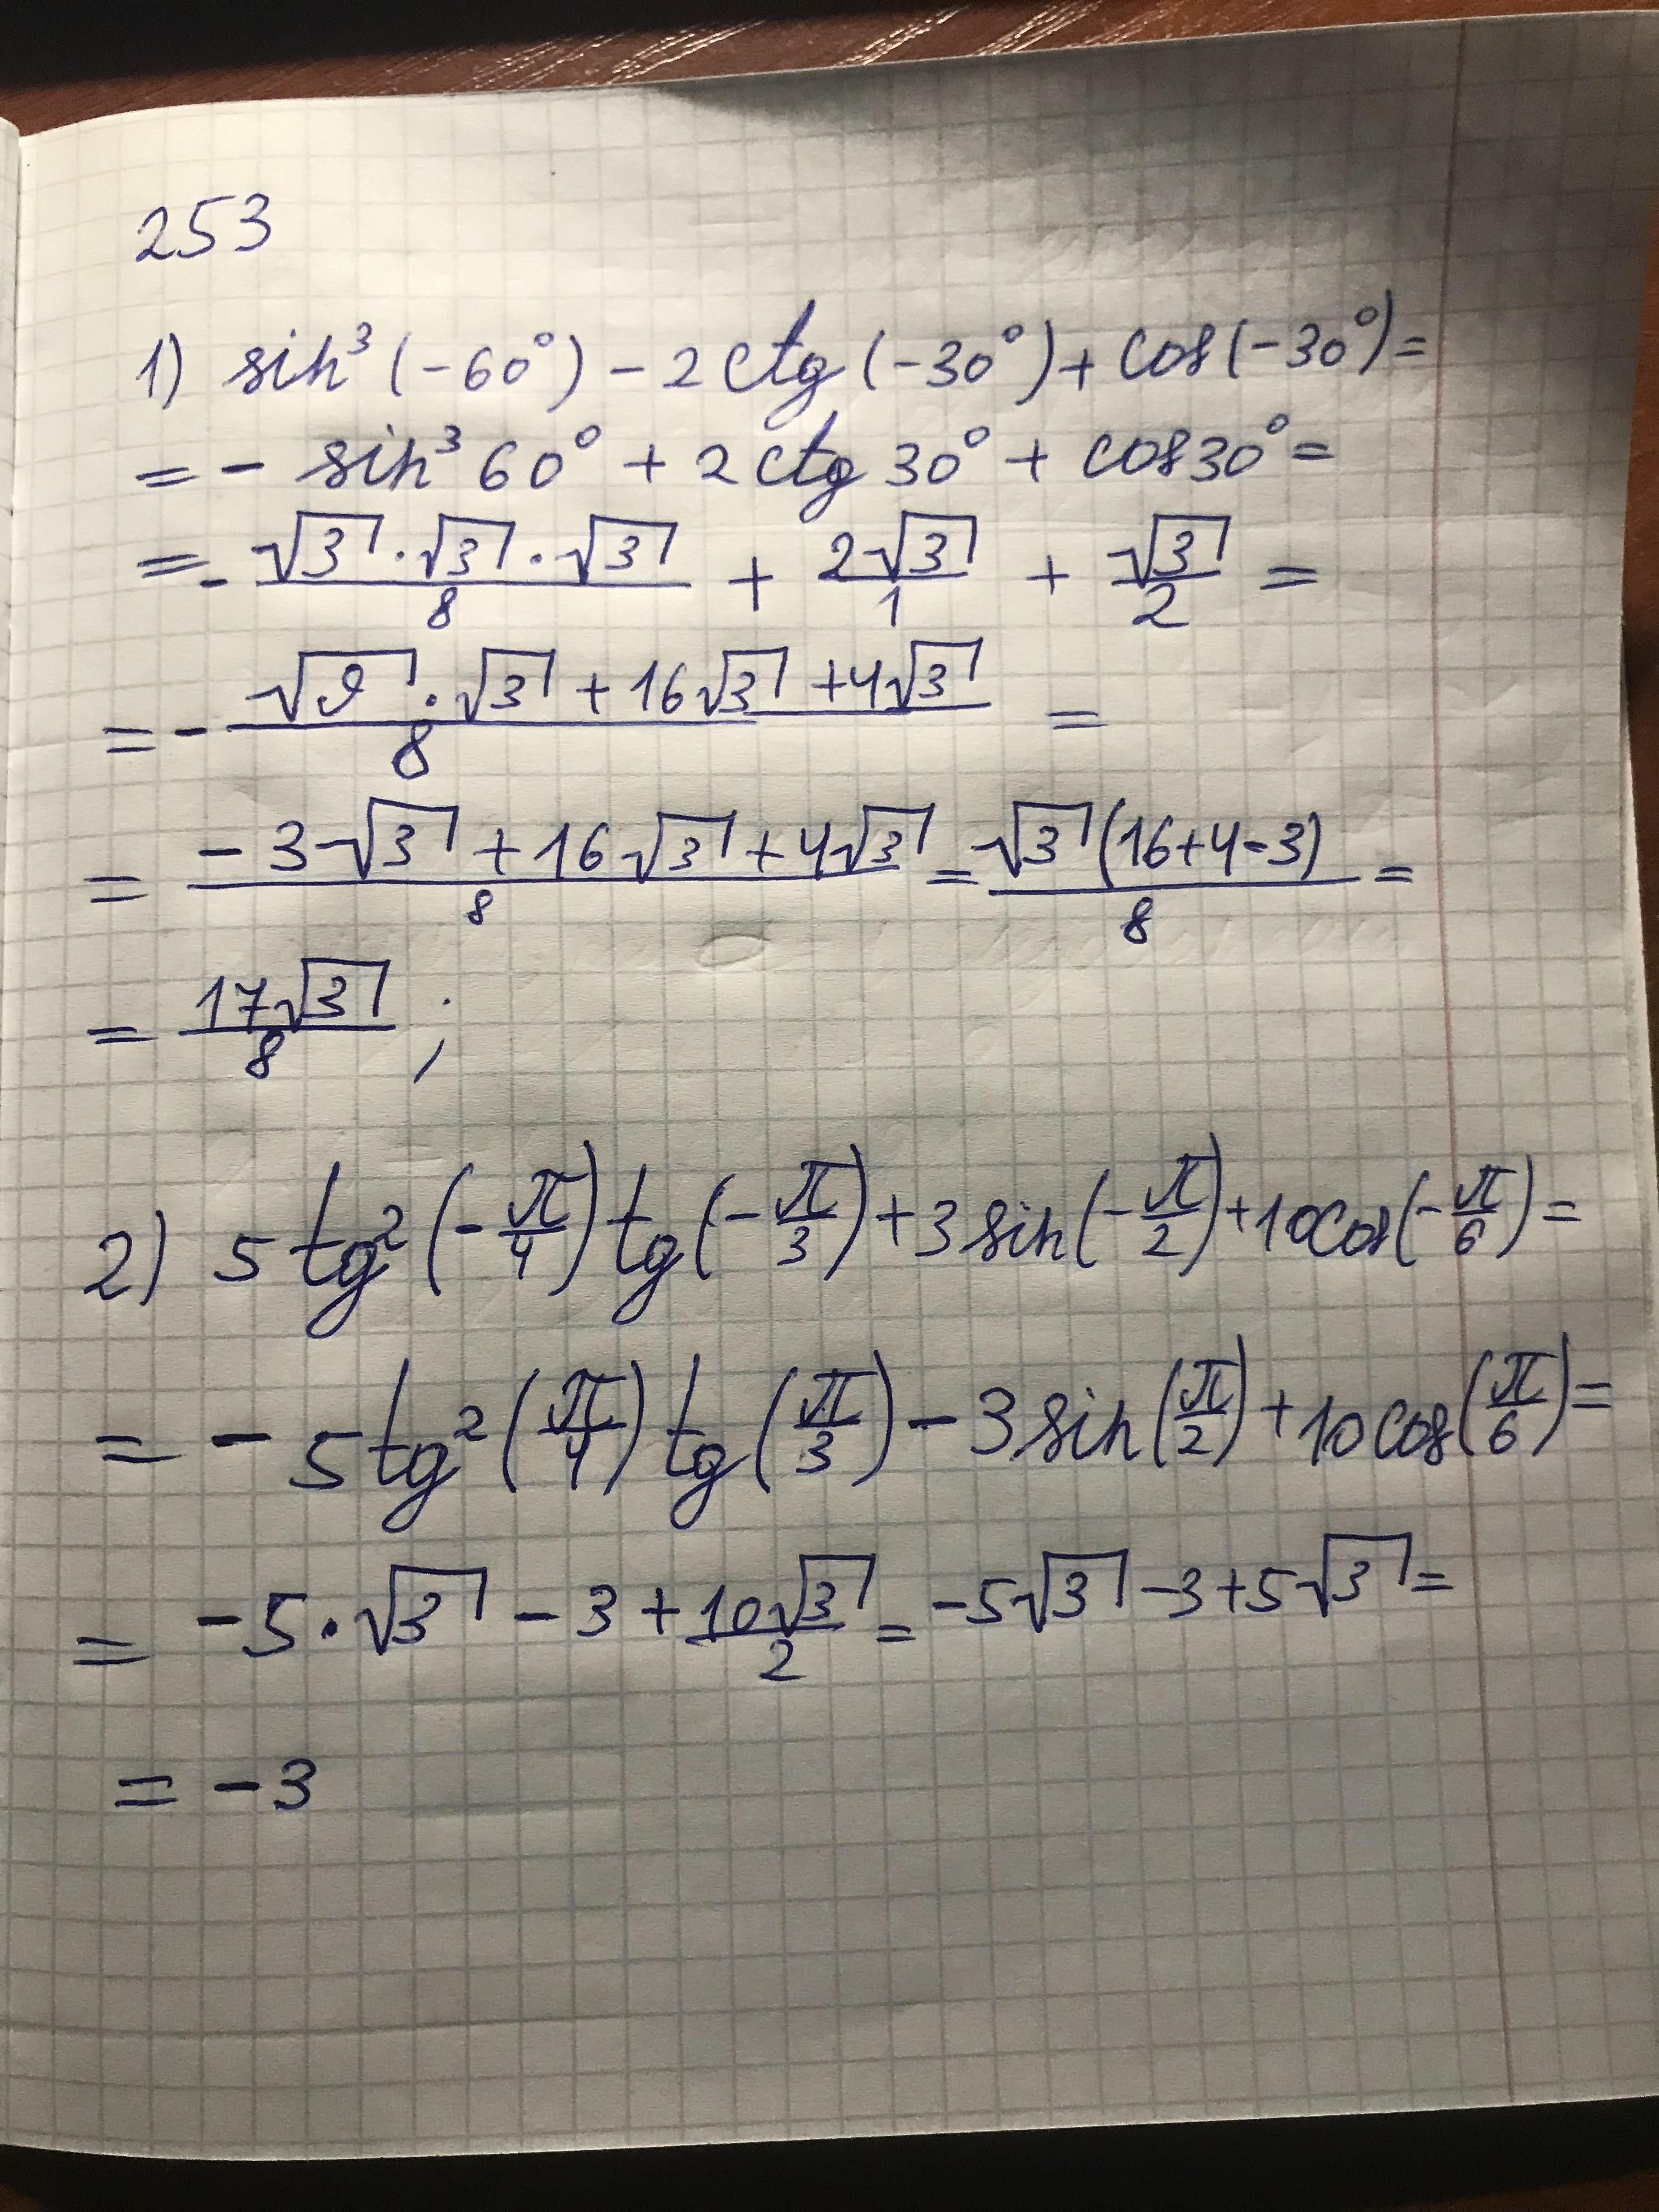 253
1) sin³(-60°) - 2ctg(-30°) + cos(-30°) =
= - sin³60° + 2ctg 30° + cos30° =
= - (√3 · √3 · √3)/8 + 2√3/1 + √3/2 =
= - (√9 · √3 + 16√3 + 4√3)/8 =
= (-3√3 + 16√3 + 4√3)/8 = √3(16+4-3)/8 =
= 17√3/8 ;
2) 5tg²(-π/4)tg(-π/3)+3sin(-π/2)+10cos(-π/6)=
= - 5tg²(π/4)tg(π/3) - 3sin(π/2)+10cos(π/6)=
= -5·√3 - 3 + 10√3/2 = -5√3 - 3 + 5√3 =
= -3